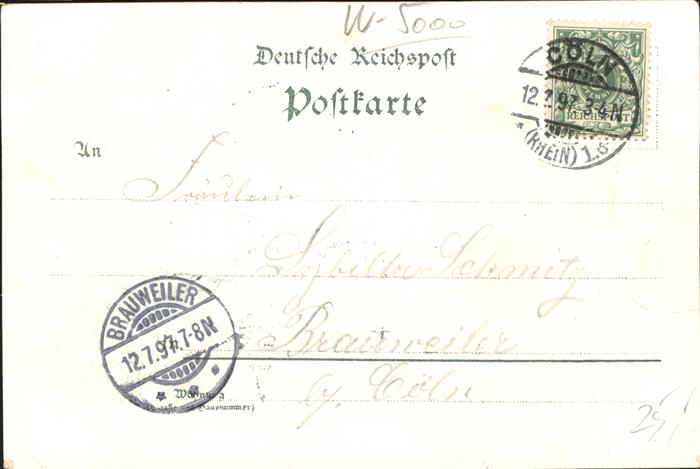 W-5000
Deutsche Reichspost
Postkarte
CÖLN
12.7.97. 3-4N
* (RHEIN) 1.
REICHSPOST
An
Fräulein
Sybilla Schmitz
BRAUWEILER
12.7.97. 7-8N
Brauweiler
by. Cöln
Wohnung
(Straße und Hausnummer)